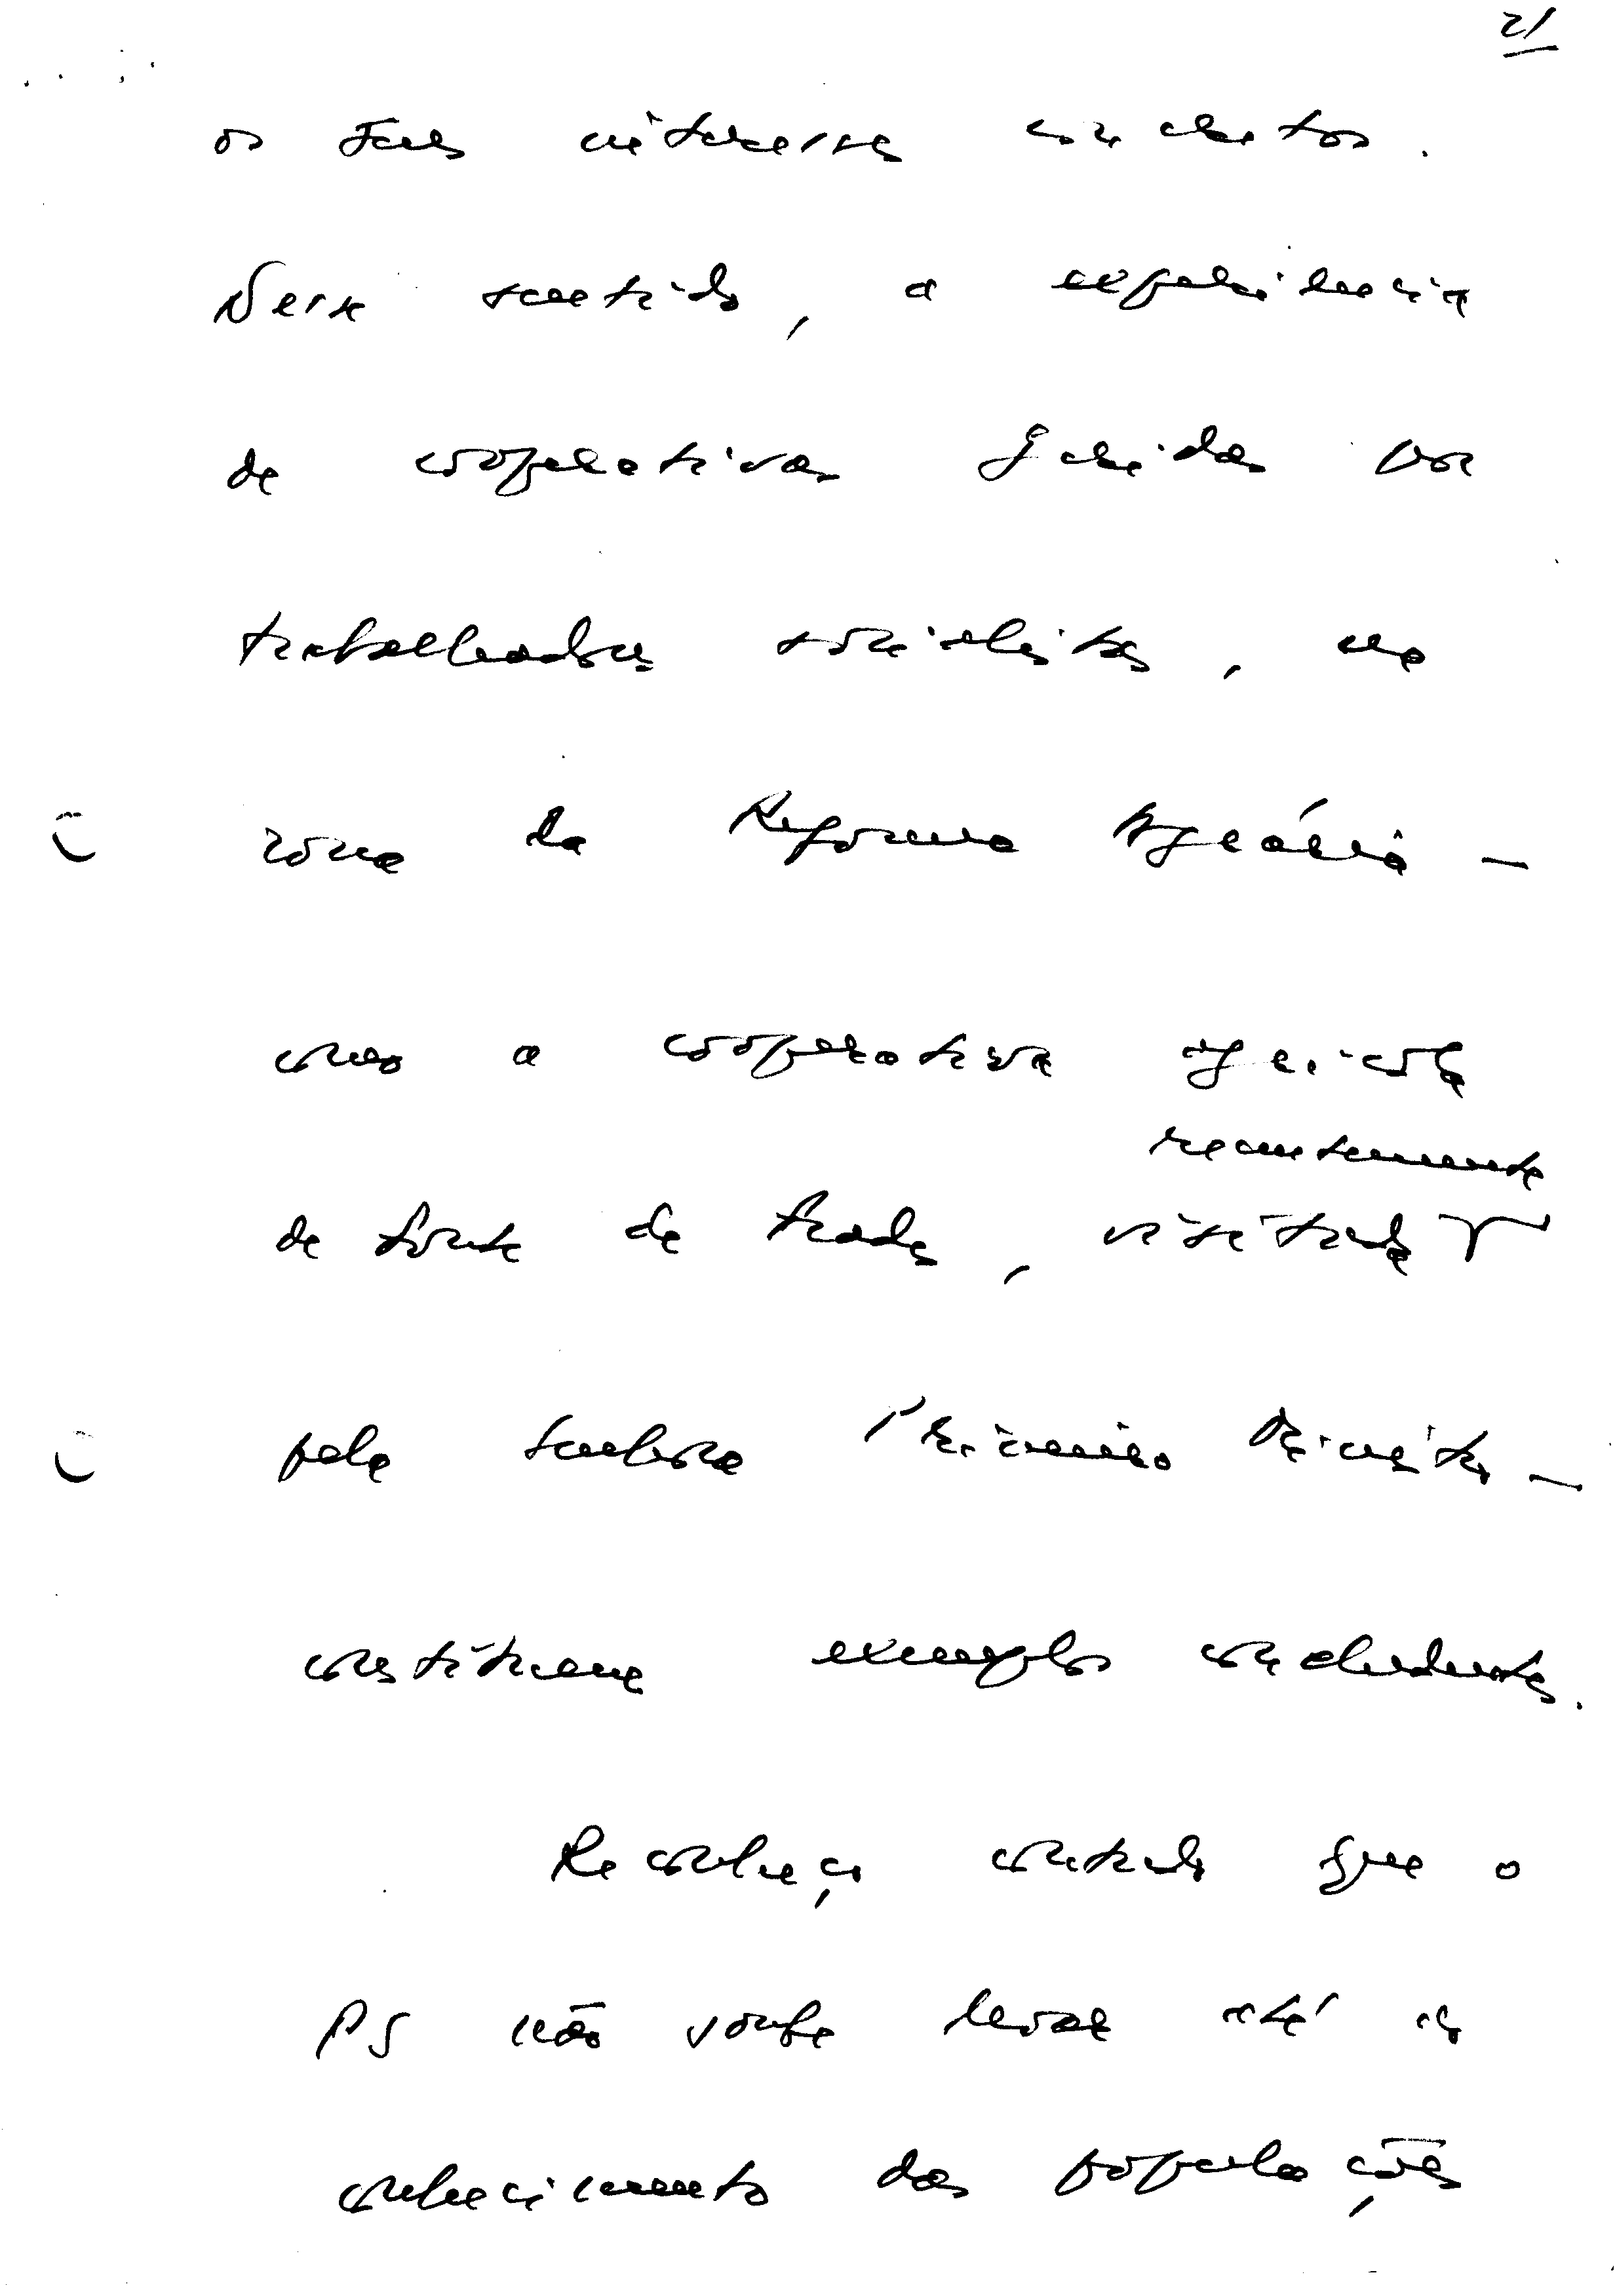 21
os seus interesses concretos.
Nesse sentido, a experiência
de cooperativas geridas por
trabalhadores socialistas, na
zona da Reforma Agrária —
como a cooperativa agrícola
recentemente
de Torre de Frade, visitada
pela senhora Primeiro Ministro —
constituem exemplos concludentes.
Reconheço contudo que o
PS não soube levar até ao
conhecimento das populações